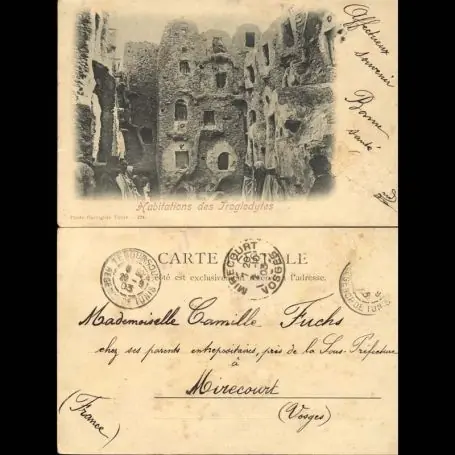 Affectueux
souvenir
Bonne
santé
Habitations des Troglodytes
Photo Garrigues Tunis
CARTE POSTALE
Côté est exclusivement réservé à l'adresse.
TEBOURSOUK
REGENCE DE TUNIS
MIRECOURT
VOSGES
REGENCE DE TUNIS
Mademoiselle Camille Fuchs
chez ses parents entrepositaires, près de la Sous-Préfecture
à
Mirecourt
(Vosges)
(France)